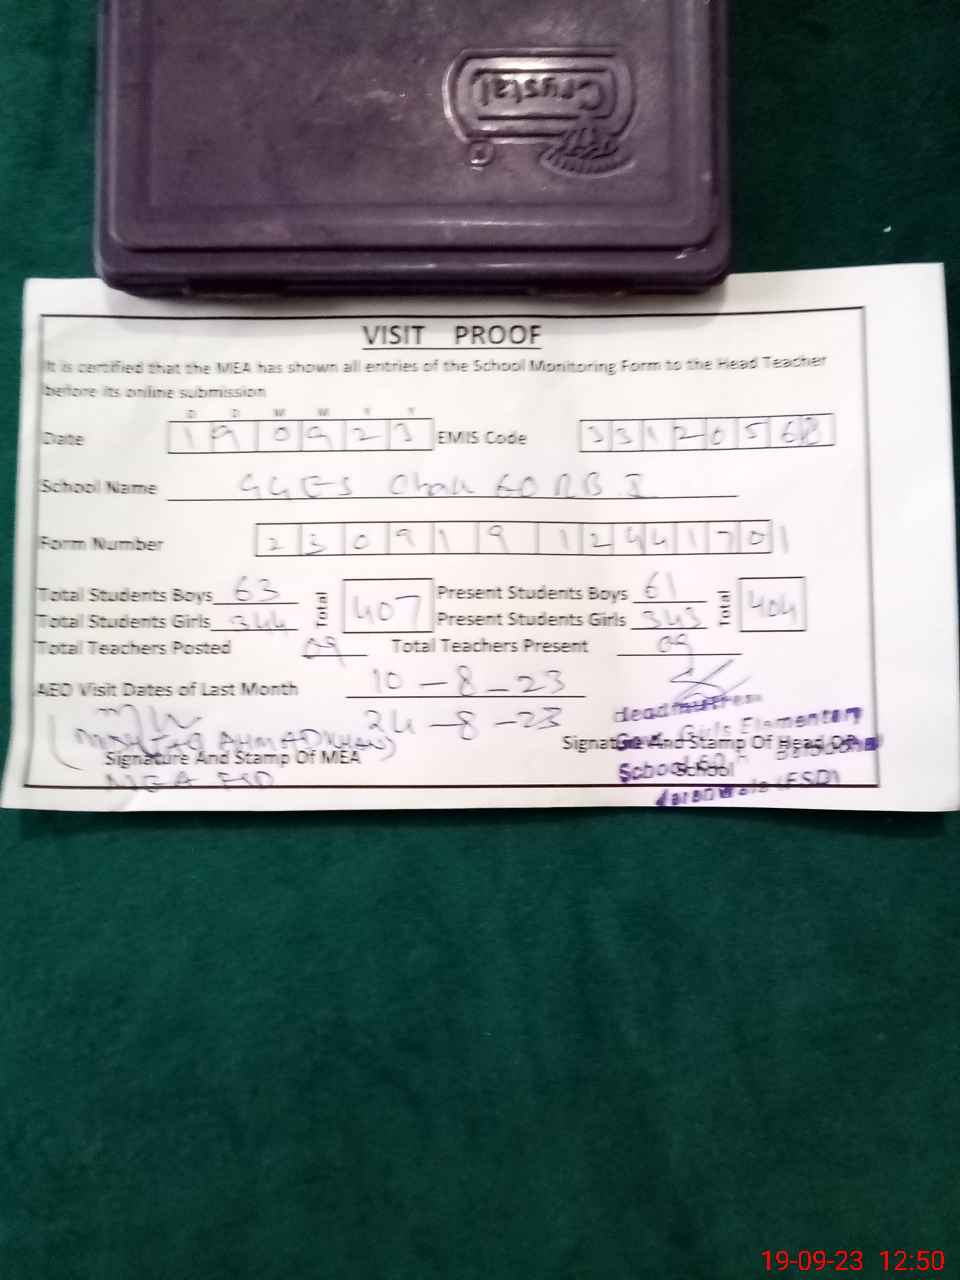 Crystal
VISIT PROOF
It is certified that the MEA has shown all entries of the School Monitoring Form to the Head Teacher
before its online submission
D D M M Y Y
Date 1 9 0 9 2 3 EMIS Code 3 3 1 2 0 5 6 8
School Name GGES Chak 60 RB I
Form Number 2 3 0 9 1 9 1 2 4 4 1 7 0 1
Total Students Boys 63 Total 407 Present Students Boys 61 Total 404
Total Students Girls 344 Present Students Girls 343
Total Teachers Posted 09 Total Teachers Present 09
AEO Visit Dates of Last Month 10-8-23
24-8-23
Headmistress
Govt. Girls Elementary
(MUSHTAQ AHMAD KHAN)
Signature And Stamp Of MEA Signature And Stamp Of Head Of
School
School
MEA FSD
Jaranwala (FSD)
19-09-23 12:50